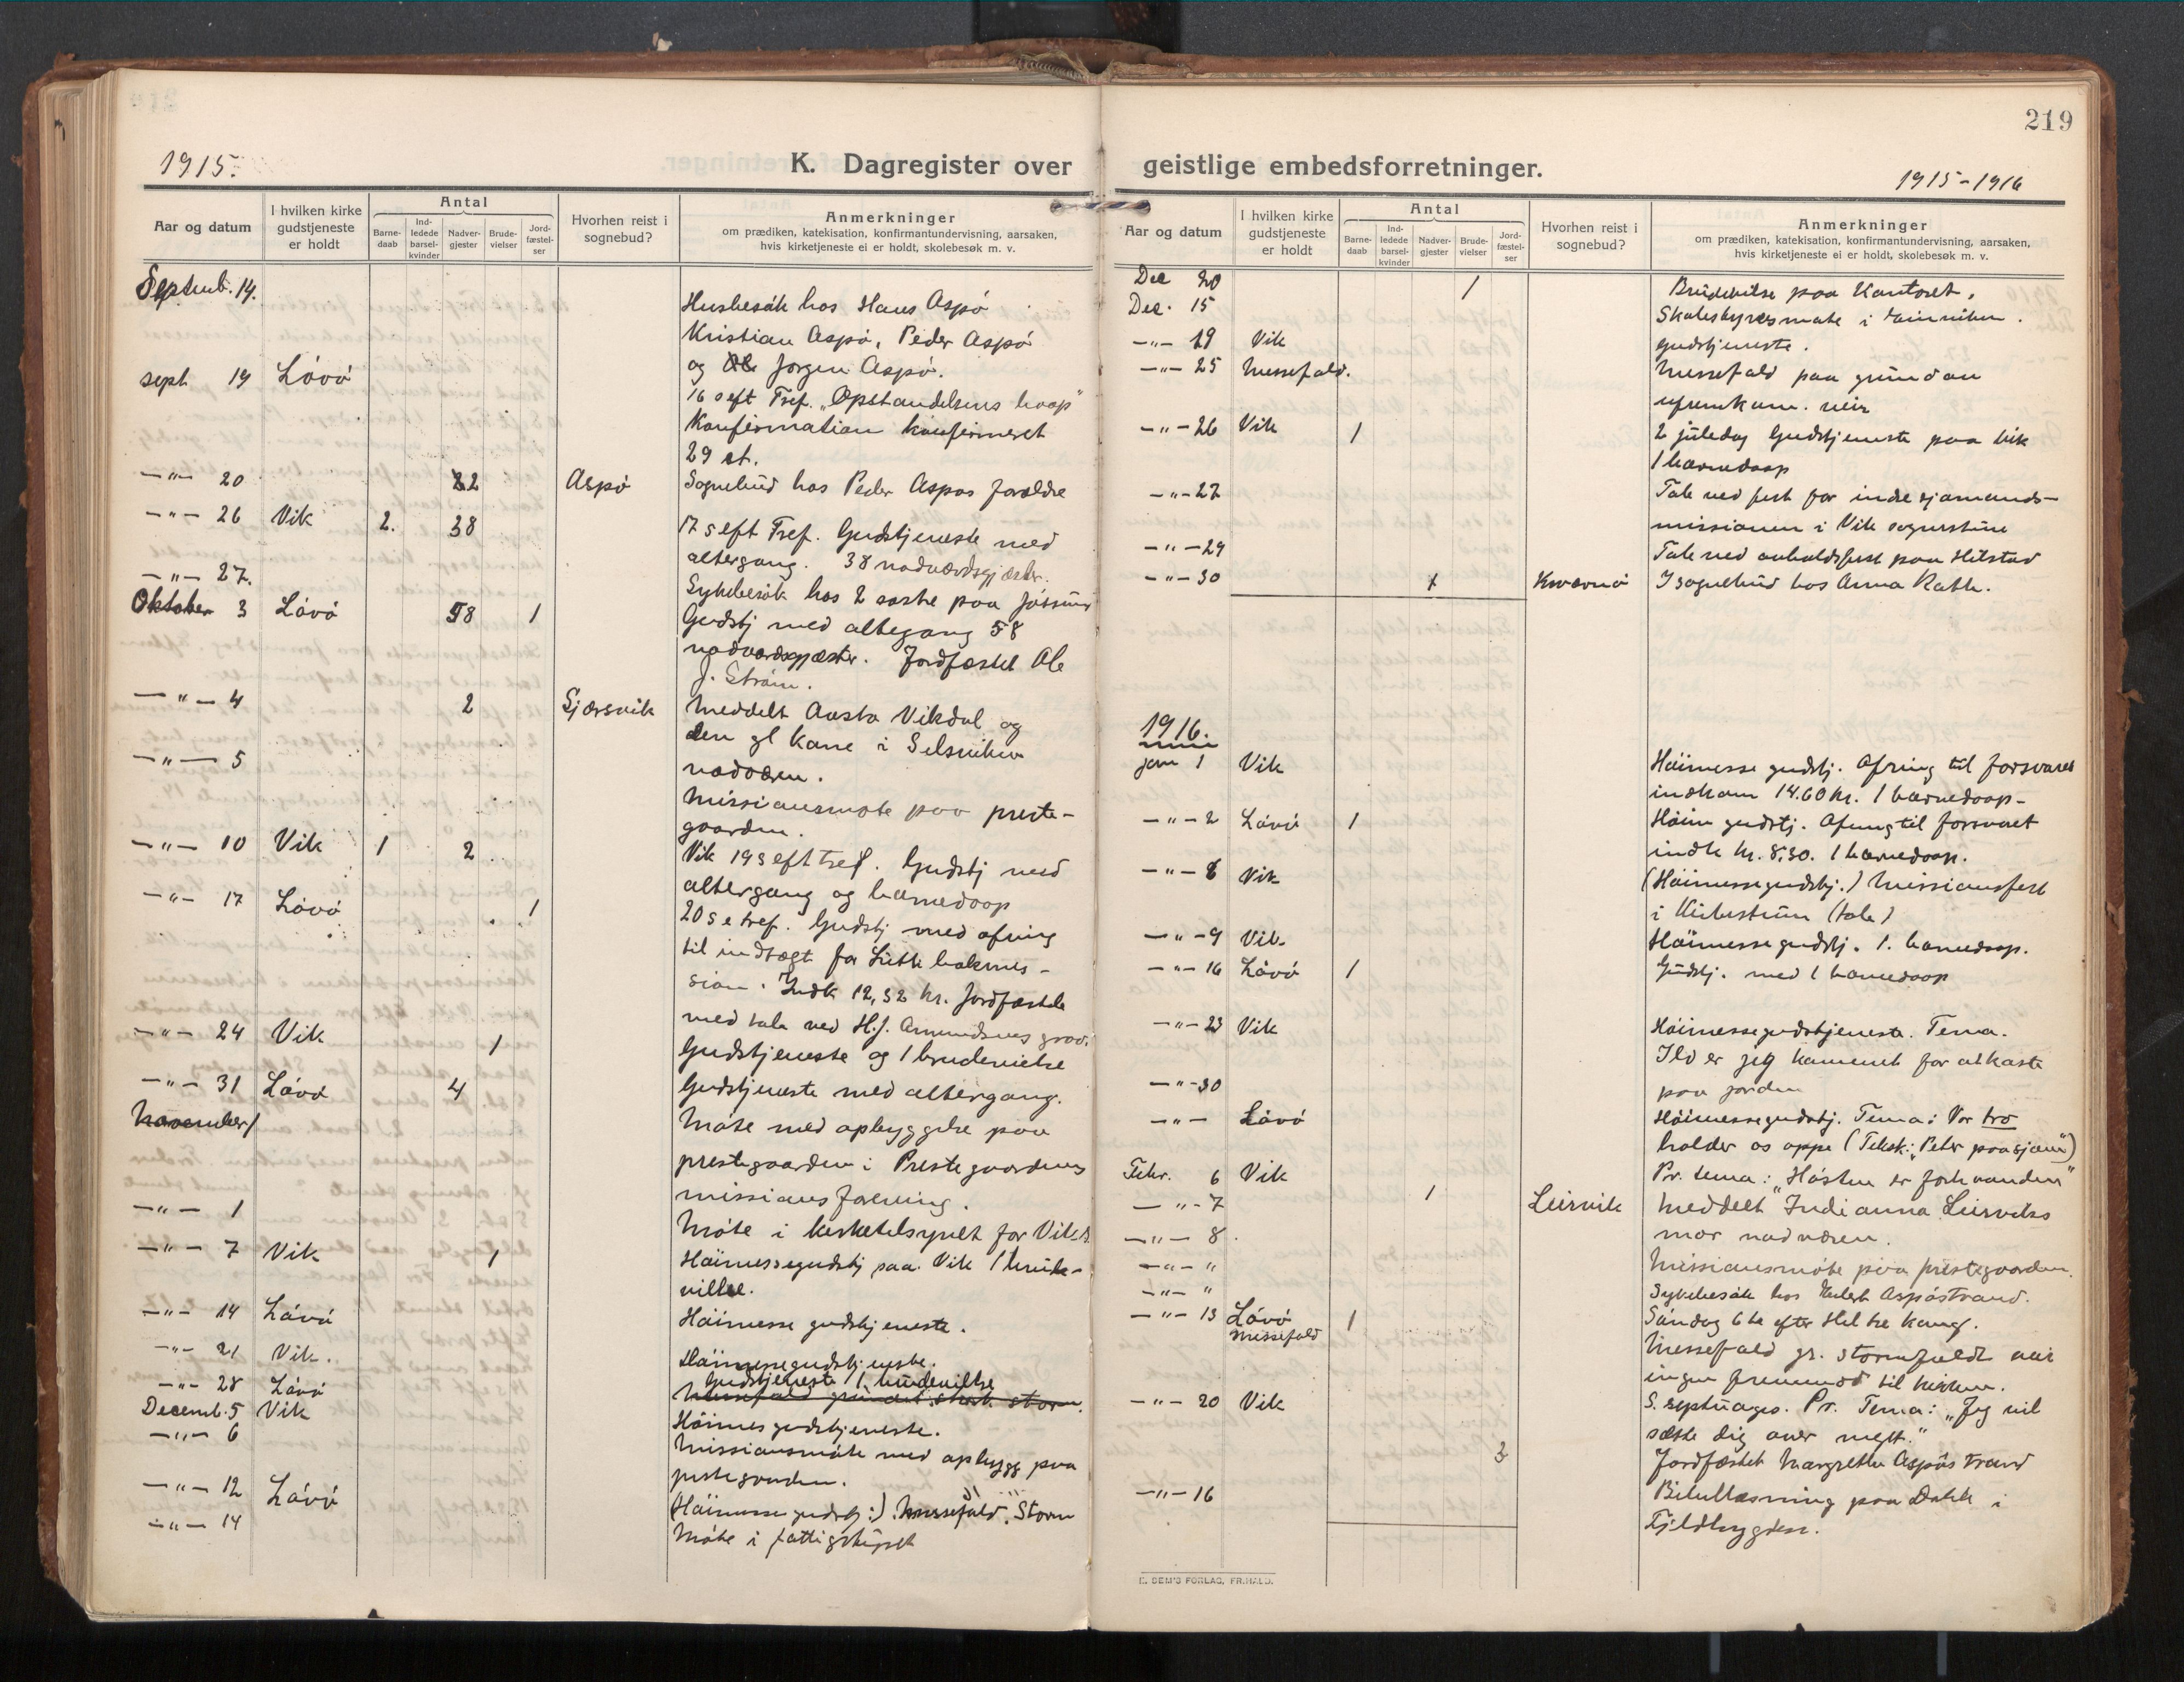 219
1915.
K. Dagregister over
geistlige embedsforretninger.
1915-1916
Aar og datum
I hvilken kirke
gudstjeneste
er holdt
Antal
Barne-
daab
Ind-
ledede
barsel-
kvinder
Nadver-
gjester
Brude-
vielser
Jord-
fæstel-
ser
Hvorhen reist i
sognebud?
Anmerkninger
om prædiken, katekisation, konfirmantundervisning, aarsaken,
hvis kirketjeneste ei er holdt, skolebesøk m. v.
Septemb. 14.
Husbesøk hos Hans Aspø
Kristian Aspø, Peder Aspø
og Jørgen Aspø.
sept 19 Løvø
16 s eft Tref. „Opstandelsens haap"
Konfirmation konfirmeret
29 st.
—"— 20 22 Aspø Sognebud hos Peder Aspøs forældre
—"— 26 Vik 2. 38 17 s eft Tref. Gudstjeneste med
altergang. 38 nadverdsgjæster.
—"— 27. Sykebesøk hos 2 paa Jøssund
Oktober 3 Løvø 58 1 Gudstj med altegang 58
nadverdsgjæster. Jordfæstet Ole
J. Strøm.
—"— 4 2 Sjærsvik Meddelt Aasta Vikdal og
den gl kone i Selsviken
nadveren.
—"— 5 Missionsmøte paa preste-
gaarden.
—"— 10 Vik 1 2 Vik 19 s eft tref. Gudstj med
altergang og barnedaap
—"— 17 Løvø 1 20 s e tref. Gudstj med ofring
til indtægt for Lutk
sion. Indk 12,32 kr. Jordfæstet
med tale ved H.J. Amundsens grav.
—"— 24 Vik 1 Gudstjeneste og 1 brudevielse
—"— 31 Løvø 4 Gudstjeneste med altergang.
November 1 Møte med opbyggelse paa
prestegaarden i Prestegaardens
missionsforening.
—"— 1 Møte i kirketilsynet for Vik s.
—"— 7 Vik 1 Høimessegudstj paa Vik 1 brude-
vielse.
—"— 14 Løvø Høimesse gudstjeneste.
—"— 21 Vik. Høimessegudstjeneste.
—"— 28 Løvø Gudstjeneste 1 brudevielse
Messefald grundet sterk storm.
Decemb. 5 Vik Høimes gudstjeneste.
—"— 6 Missionsmøte med opbygg paa
prestegaarden.
—"— 12 Løvø (Høimesse gudstj:) Messefald. Storm
—"— 14 Møte i fattigstyret
Aar og datum
I hvilken kirke
gudstjeneste
er holdt
Antal
Barne-
daab
Ind-
ledede
barsel-
kvinder
Nadver-
gjester
Brude-
vielser
Jord-
fæstel-
ser
Hvorhen reist i
sognebud?
Anmerkninger
om prædiken, katekisation, konfirmantundervisning, aarsaken,
hvis kirketjeneste ei er holdt, skolebesøk m. v.
Dec 20 1 Brudevielse paa Kontoret.
Dec. 15 Skolestyresmøte i
—"— 19 Vik gudstjeneste.
—"— 25 Messefald. Messefald paa grund av
ufremkom. veir
—"— 26 Vik 1 2 juledag Gudstjeneste paa Vik
1 barnedaap
—"— 27 Tale ved fest for indre sjømands-
missionen i Vik sognestue
—"— 29 Tale ved avholdsfest paa Hilstad
—"— 30 1 Kværnø I sognebud hos Anna Kath.
1916.
jan 1 Vik Høimesse gudstj. Ofring til forsvaret
indkom 14.60 kr. 1 barnedaap-
—"— 2 Løvø 1 Høim gudstj. Ofring til forsvaret
indk kr. 8,30. 1 barnedaap.
—"— 6 Vik (Høimessegudstj.) Missionsfest
i (tale)
—"— 9 Vik. Høimesse gudstj. 1. barnedaap.
—"— 16 Løvø 1 Gudstj. med 1 barnedaap
—"— 23 Vik Høimessegudstjeneste. Tema.
Ild er jeg kommet for at kaste
paa jorden
—"— 30
—"— Løvø Høimessegudstj. Tema: Vor tro
holder os oppe (Tekst: „Peter paa sjøen")
Febr. 6 Vik Pr. tema: „Høsten er forhaanden"
—"— 7 1 Leirvik Meddelt Indianna Leirviks
mor nadveren.
—"— 8 Missionsmøte paa prestegaarden.
—"— " Sykebesøk hos Aspøstrand.
—"— "
—"— 13 Løvø 1 Søndag 6te efter Hel tre kong.
Messefald Messefald gr. stormfuldt veir
ingen fremmød til kirken.
—"— 20 Vik S. septuages. Pr. Tema: „Jeg vil
sætte dig over meget."
2 Jordfæstet Margrethe Aspøstrand
—"— 16 Bibellæsning paa Dahle i
Fjeldbygden.
E. SEM'S FORLAG, FR.HALD.